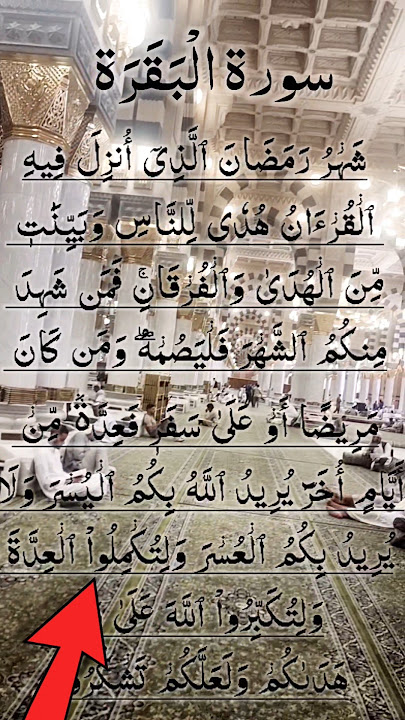 سورة الْبَقَرَة
شَهْرُ رَمَضَانَ ٱلَّذِىٓ أُنزِلَ فِيهِ
ٱلْقُرْءَانُ هُدًى لِّلنَّاسِ وَبَيِّنَٰتٍ
مِّنَ ٱلْهُدَىٰ وَٱلْفُرْقَانِ ۚ فَمَن شَهِدَ
مِنكُمُ ٱلشَّهْرَ فَلْيَصُمْهُ ۖ وَمَن كَانَ
مَرِيضًا أَوْ عَلَىٰ سَفَرٍ فَعِدَّةٌ مِّنْ
أَيَّامٍ أُخَرَ ۗ يُرِيدُ ٱللَّهُ بِكُمُ ٱلْيُسْرَ وَلَا
يُرِيدُ بِكُمُ ٱلْعُسْرَ وَلِتُكْمِلُوا۟ ٱلْعِدَّةَ
وَلِتُكَبِّرُوا۟ ٱللَّهَ عَلَىٰ
هَدَىٰكُمْ وَلَعَلَّكُمْ